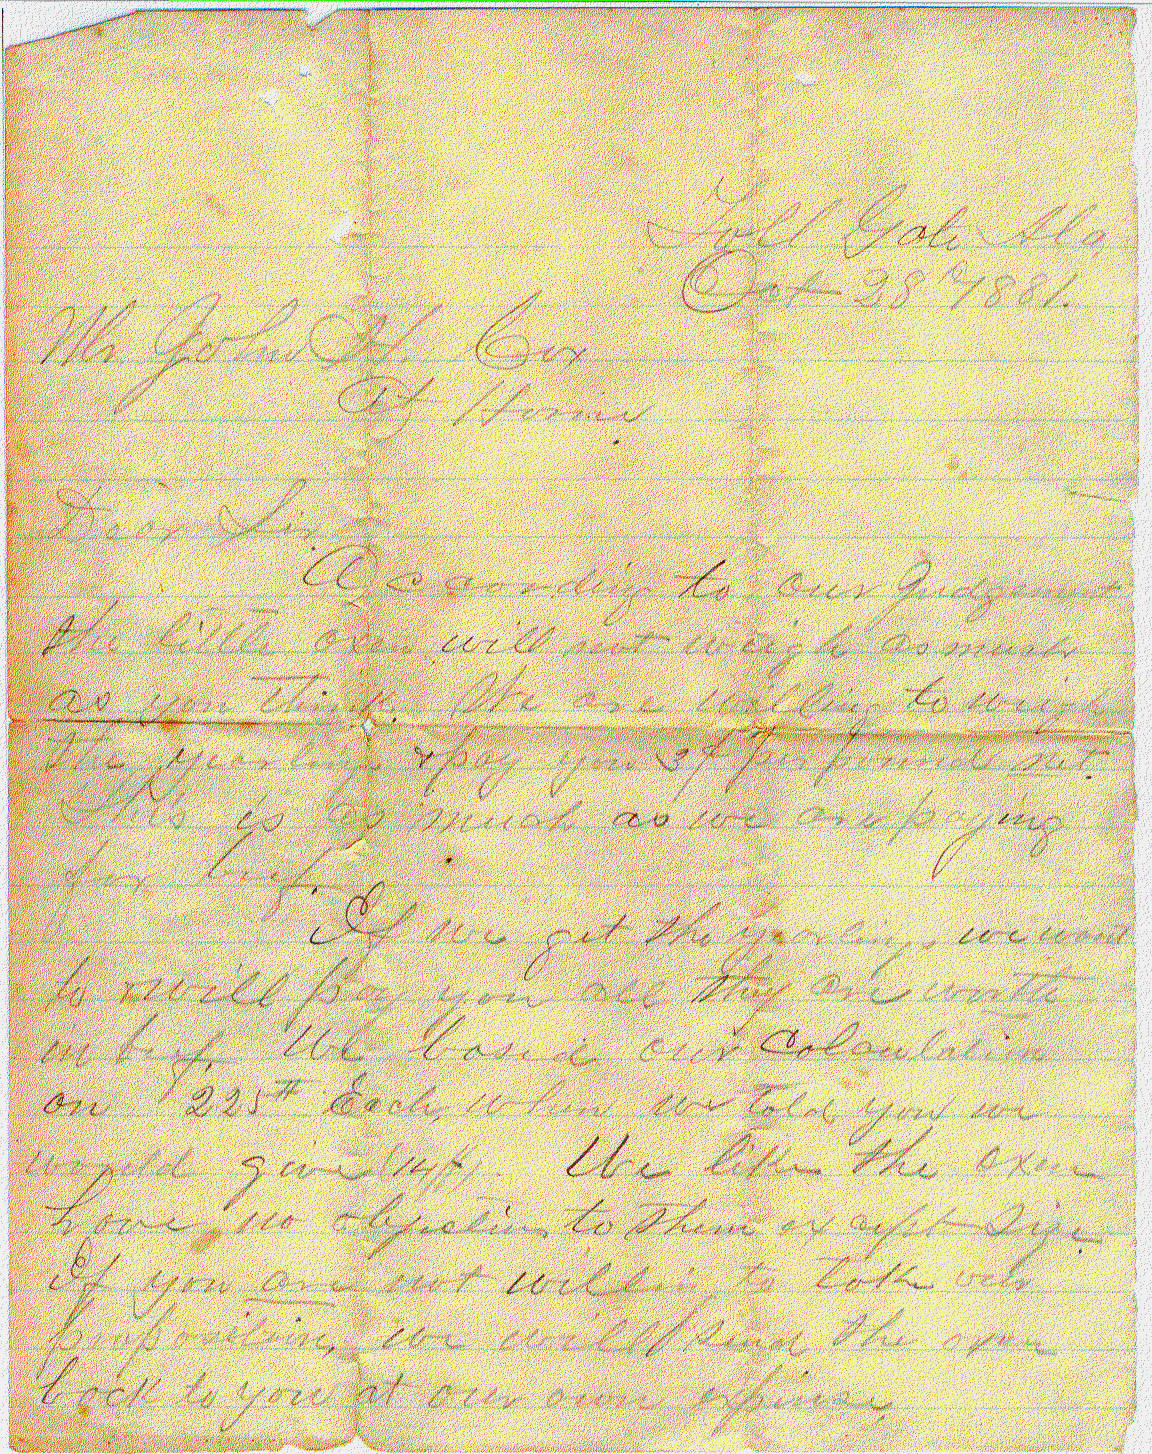 Toll Gate Ala
Oct 28th 1881.
Mr John H. Cox
At Home
Dear Sir
According to our Judgement
the little oxen will not weigh as much
as you think. We are willing to weigh
the yearlings & pay you 3¢ per pound net.
This is as much as we are paying
for beef.
If we get the yearlings, we want
to & will pay you all they are worth
in beef. We based our Calculation
on 225# Each, when we told you we
would give
We like the oxen
have no objections to them except Size.
If you are not willing to take our
proposition, we will send the oxen
back to you at our own expense.